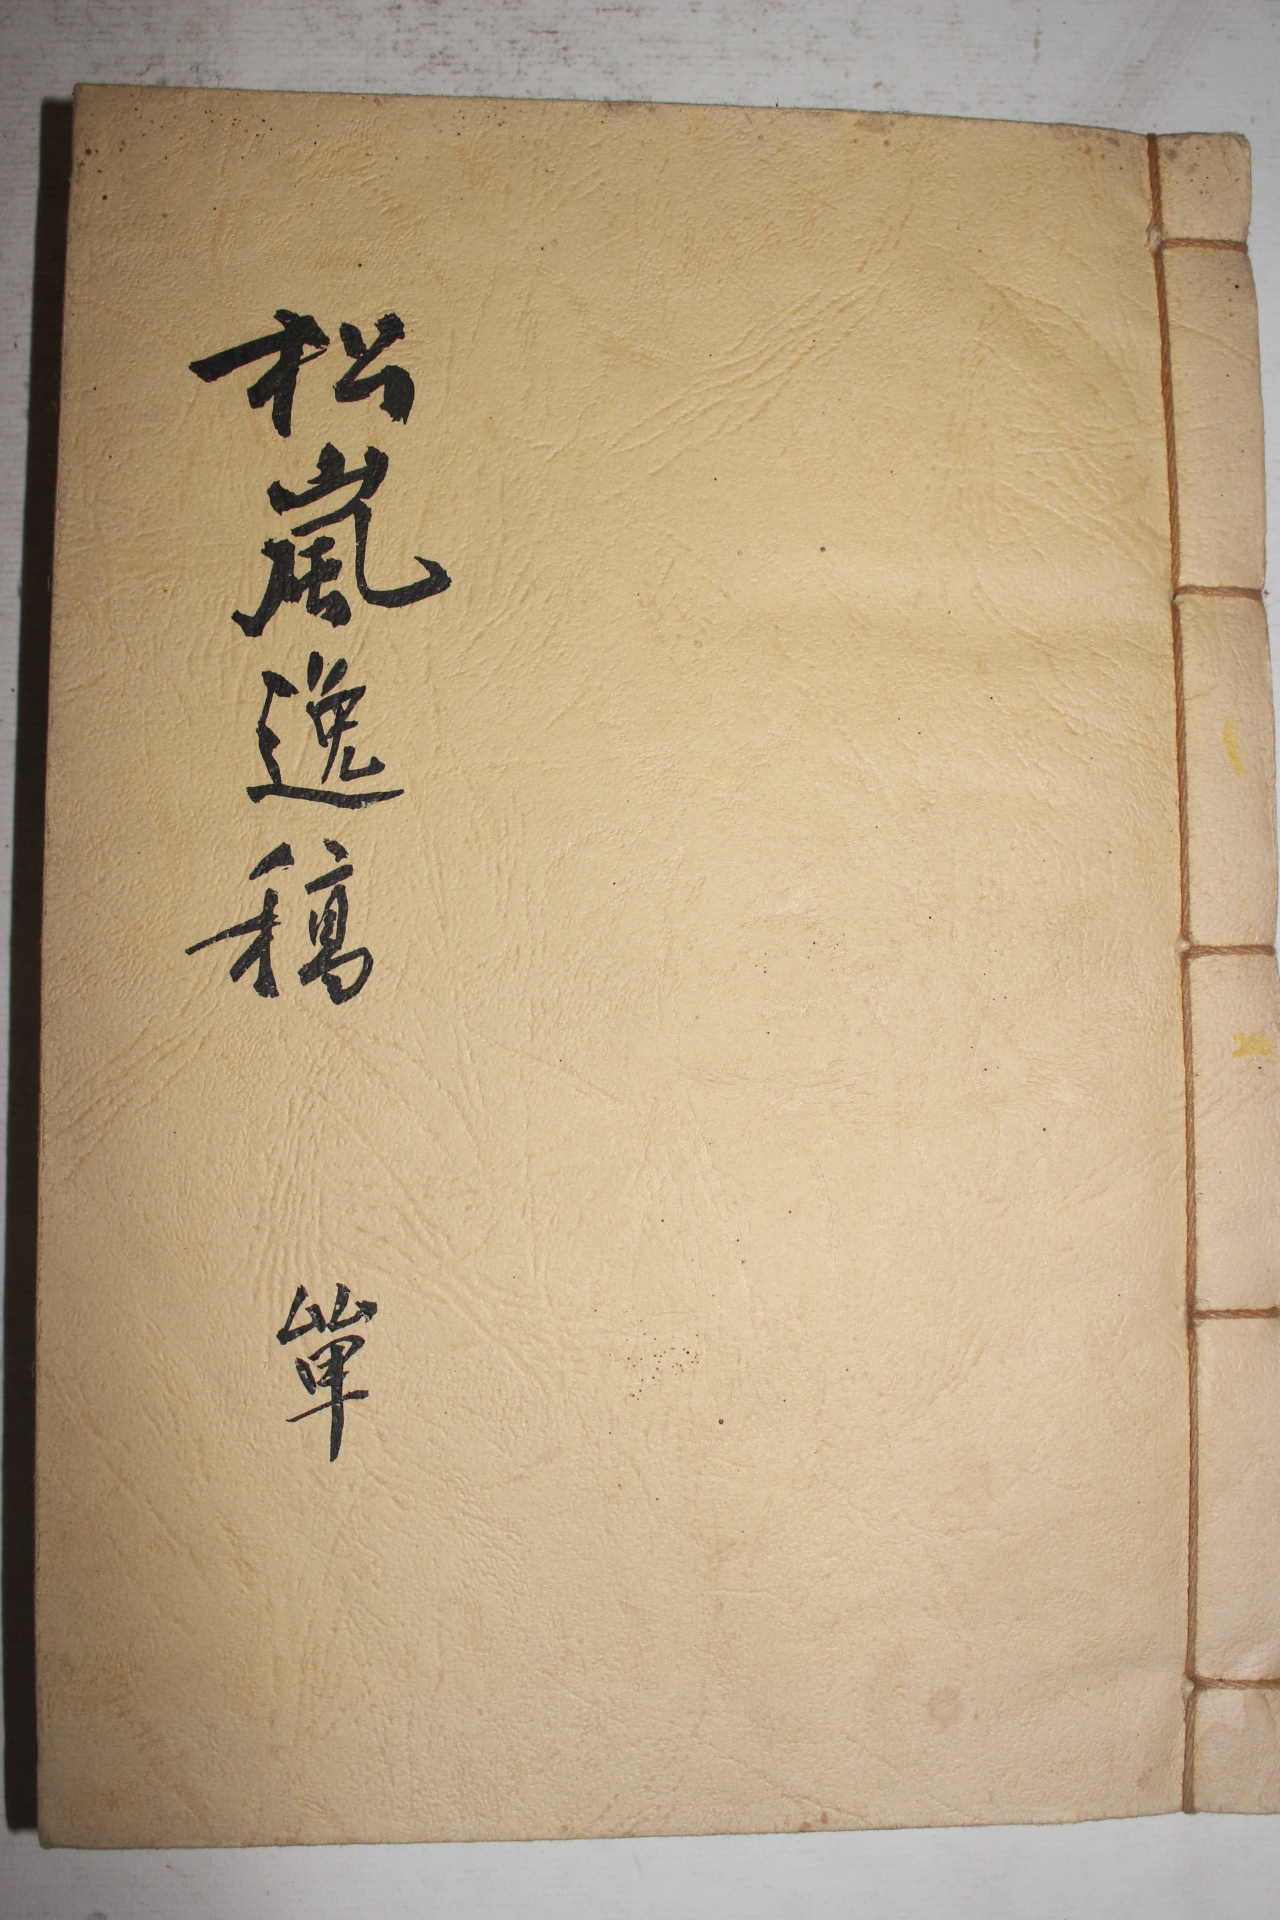 松嵐逸稿
單